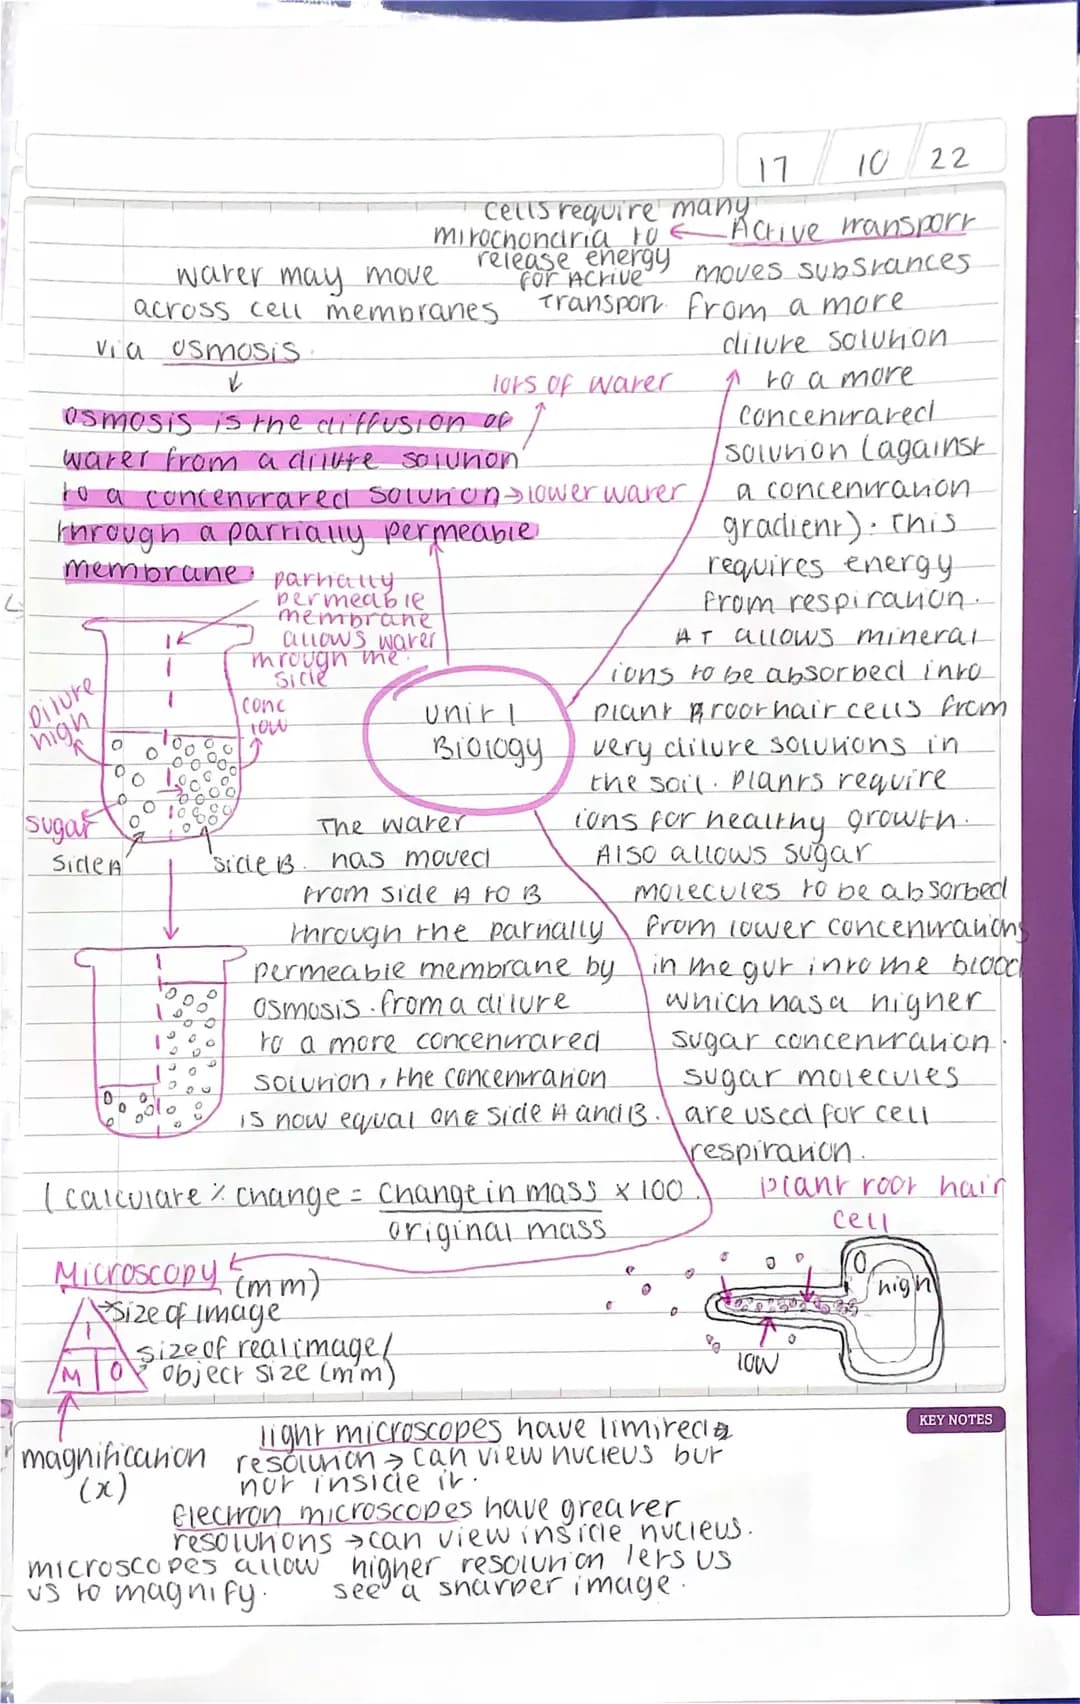 17 / 10 / 22
cells require many
mitochondria to ← Active transport
release energy
for Active
Transport.
moves substances
from a more
dilute solution
to a more
concentrated
solution (against
a concentration
gradient). This
requires energy
from respiration.
AT allows mineral
ions to be absorbed into
plant root hair cells from
very dilute solutions in
the soil. Plants require
ions for healthy growth.
Also allows sugar
molecules to be absorbed
from lower concentrations
in the gut into the blood
which has a higher
sugar concentration.
sugar molecules
are used for cell
respiration.
water may move
across cell membranes
via osmosis.
lots of water
osmosis is the diffusion of
water from a dilute solution
to a concentrated solution → lower water
through a partially permeable
membrane.
partially
permeable
membrane
allows water
through the
side
Dilute
high
conc
low
sugar
side A
side B.
unit 1
Biology
The water
has moved
from side A to B
through the partially
permeable membrane by
osmosis. from a dilute
to a more concentrated
solution, the concentration
is now equal one side A and B.
(calculate % change = change in mass x 100
original mass
plant root hair
cell
high
low
Microscopy
(mm)
size of image
I
M O
size of real image/
object size (mm)
magnification
(x)
KEY NOTES
light microscopes have limited
resolution → can view nucleus but
not inside it.
Electron microscopes have greater
resolutions → can view inside nucleus.
microscopes allow
us to magnify.
higher resolution lets us
see a sharper image.